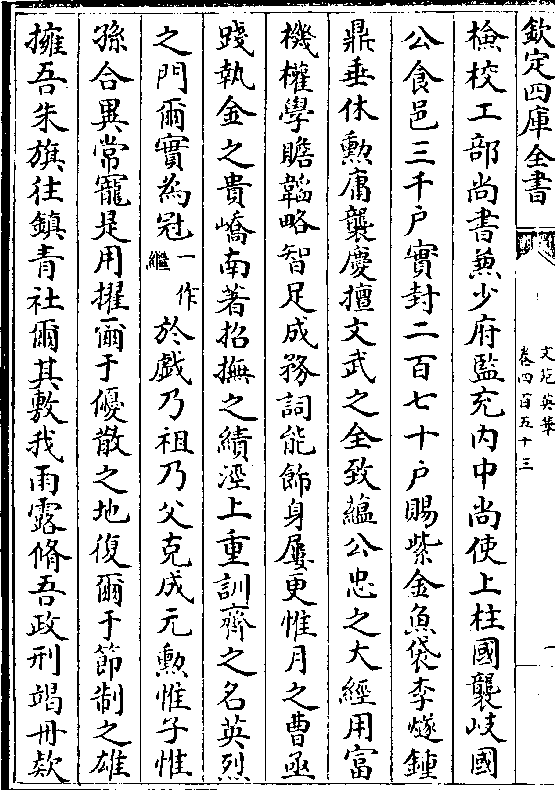 欽定四庫全書
文苑英華
卷四百五十三
一
檢校工部尚書兼少府監充内中尚使上柱國襲岐國
公食邑三千户實封二百七十户賜紫金魚袋李燧鍾
鼎垂休勲庸襲慶擅文武之全致藴公忠之大經用富
機權學贍韜略智足成務詞能飾身屢更惟月之曹亟
踐執金之貴嶠南著招撫之績涇上重訓齊之名英烈
之門爾實為冠一作繼於戲乃祖乃父克成元勲惟子惟
孫合異常寵是用擢爾于優散之地復爾于節制之雄
擁吾朱旗往鎮青社爾其敷我雨露脩吾政刑竭丹款